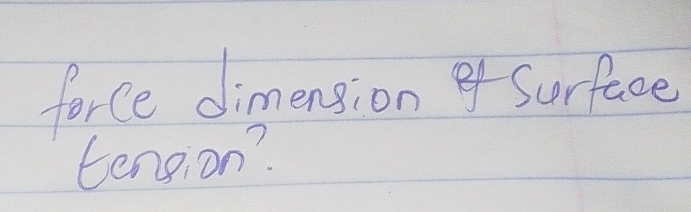 force dimension of surface
tension?